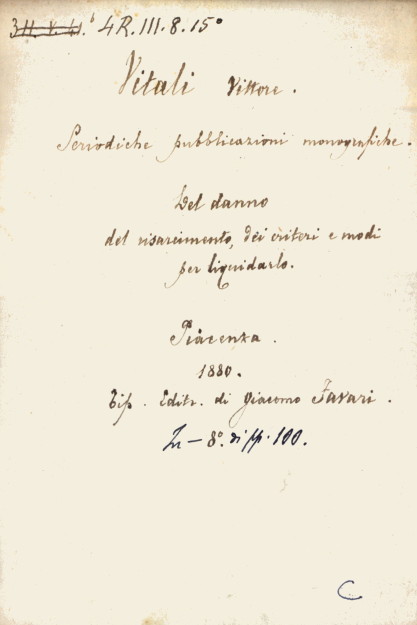 4R.III.8.15°
Vitali Vittore.
Periodiche pubblicazioni monografiche.
Del danno
del risarcimento, dei criteri e modi
per liquidarlo.
Piacenza.
1880.
Tip. Editr. di Giacomo Favari.
In-8°. di pp. 100.
C